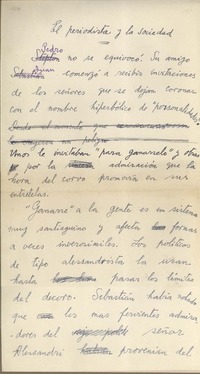 El periodista y la Sociedad
Pedro
no se equivocó. Su amigo
Juan
Sebastián comenzó a recibir invitaciones
de los señores que se dejan coronar
con el nombre hiperbólico de "personalidades".
Desde el momento que
Unos le invitaban "para ganárselo" y otros
por la admiración que la
hora del corvo promovía en sus
entretelas.
"Ganarse" a la gente es un sistema
muy santiaguino y afecta formas
a veces inverosímiles. Los políticos
de tipo alessandrista la usan
hasta pasar los límites
del decoro. Sebastián había notado
que los mas fervientes admira-
dores del señor
Alessandri provenían del